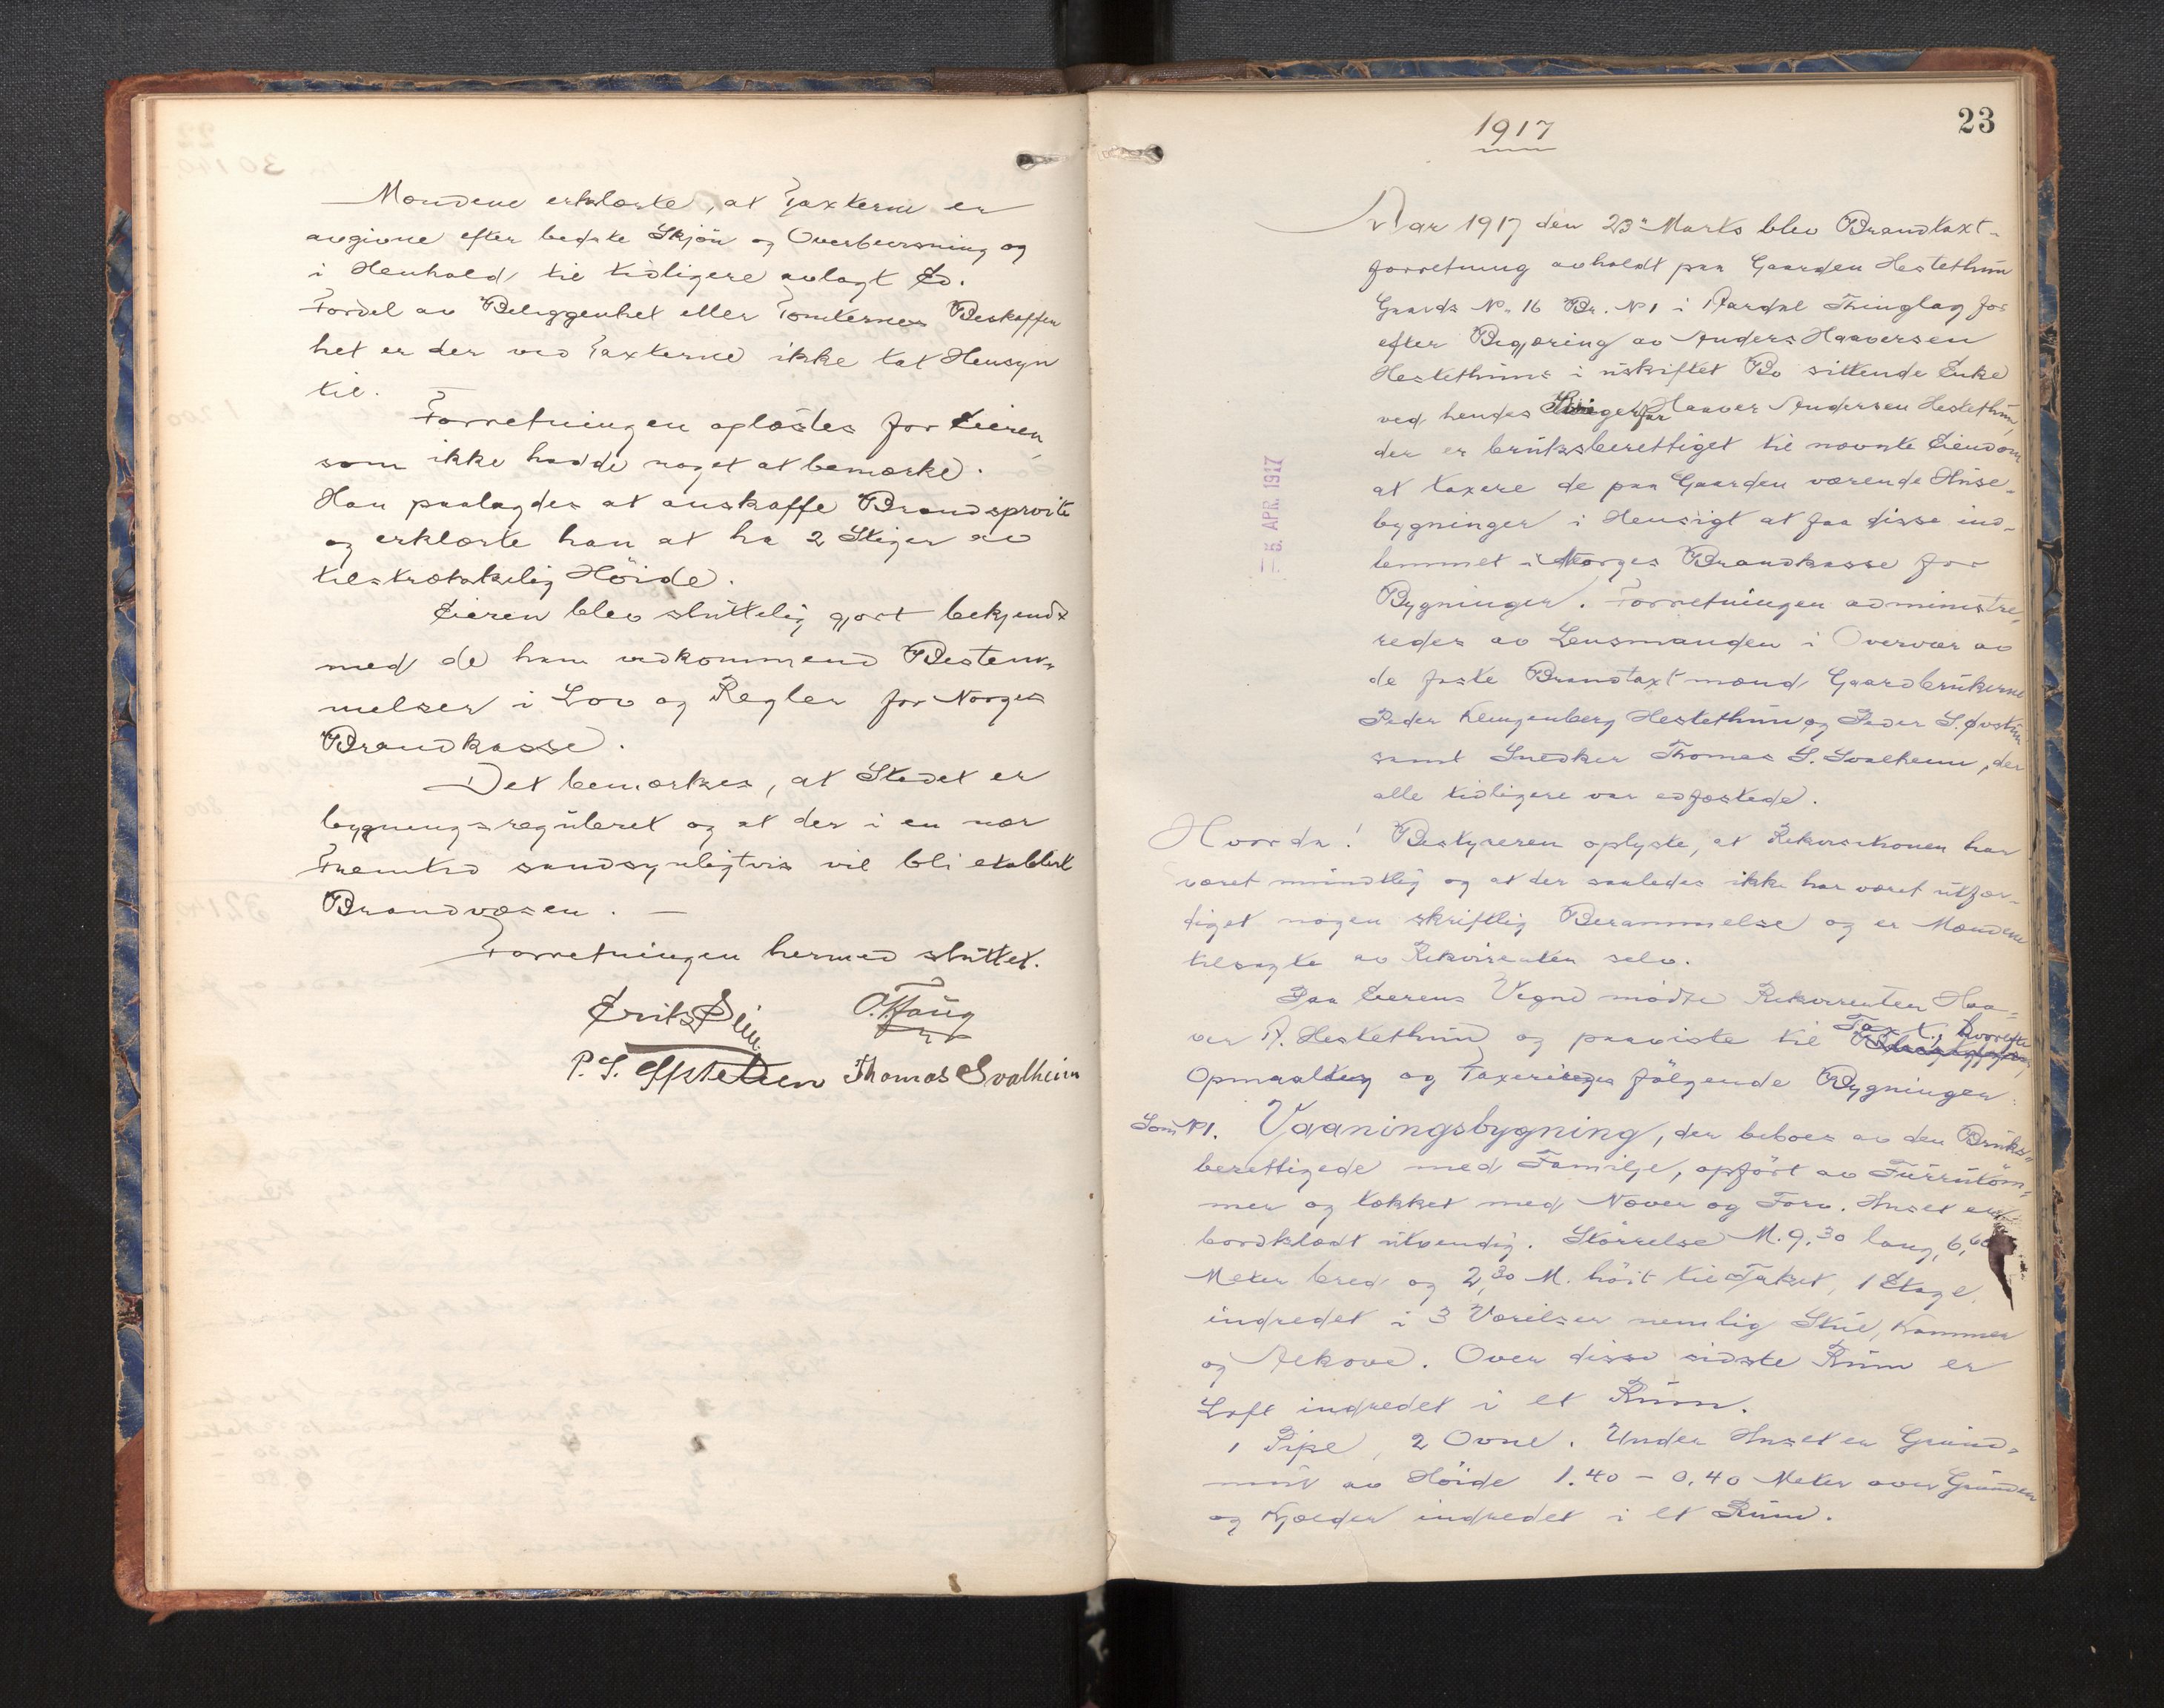 Mændene erklærte, at Taxterne er
avgivne efter bedste Skjön og Overbevisning og
i Henhold til tidligere avlagt Ed.
Fordel av Beliggenhet eller Tomternes Beskaffen
het er der ved Taxterne ikke tat Hensyn
til.
Forretningen oplæstes for Eieren,
som ikke hadde noget at bemærke.
Han paalagdes at anskaffe Brandsprøite
og erklærte han at ha 2 Stiger av
tilstrækkelig Höide.
Eieren blev sluttelig gjort bekjendt
med de ham vedkommend Bestem-
melser i Lov og Regler for Norges
Brandkasse.
Det bemærkes, at Stedet er
bygningsreguleret og at der i en nær
Fremtid sandsynligtvis vil bli etablert
Brandvæsen. —
Forretningen hermed sluttet.
P. S.
Thomas Svalheim
23
1917
Aar 1917 den 23de Marts blev Brandtaxt-
forretning avholdt paa Gaarden Hestethun
Gaards No. 16 Br. No 1 i Aardal Thinglag for
efter Begjæring av Anders Haaversen
Hestethuns i uskiftet Bo sittende Enke
ved hendes Haaver Andersen Hestethun,
der er bruksberettiget til nævnte Eiendom
at taxere de paa Gaarden værende Huse-
bygninger i Hensigt at faa disse ind-
lemmet i Norges Brandkasse for
Bygninger. Forretningen administre-
redes av Lensmanden i Overvær av
de faste Brandtaxtmænd Gaardbrukerne
Peder Klingenberg Hestethun og Peder S. Øvstun
samt Snedker Thomas S. Svalheim, der
alle tidligere var edfæstede.
= 5. APR. 1917
Hvorda! Bestyreren oplyste, at Rekvisitionen har
været mundtlig og at der saaledes ikke har været utfær-
diget nogen skriftlig Berammelse og er Mændene
tilsagte av Rekvirenten selv.
Paa Eierens Vegne mødte Rekvirenten Haa-
ver A. Hestethun og paaviste til Taxt, hvorefter
Opmaaltes og Taxeredes fölgende Bygninger:
Som No 1. Vaaningsbygning, der beboes av den Bruks-
berettigede med Familje, opfört av Furrutöm-
mer og tækket med Næver og Torv. Huset er
bordklædt utvendig. Störrelse M. 9.30 lang, 6,60
Meter bred og 2,30 M. höit til Taket, 1 Etage,
indredet i 3 Værelser nemlig Stue, Kammer
og Alkove. Over disse sidste Rum er
Loft indredet i et Rum.
1 Pipe, 2 Ovne. Under Huset er Grund-
mur av Höide 1.40 – 0.40 Meter over Grunden
og Kjælder indredet i et Rum.